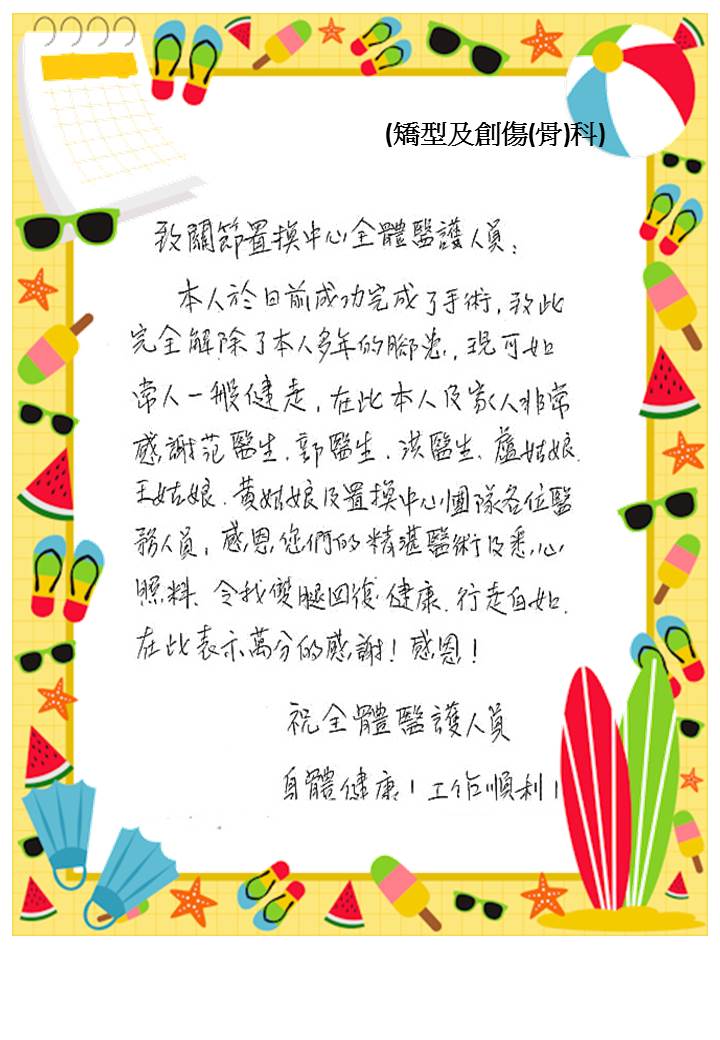 (矯型及創傷(骨)科)
致關節置換中心全體醫護人員:
本人於日前成功完成了手術,致此
完全解除了本人多年的腳患,現可如
常人一般健走,在此本人及家人非常
感謝范醫生、郭醫生、洪醫生、盧姑娘、
王姑娘、黃姑娘及置換中心團隊各位醫
務人員,感恩您們的精湛醫術及悉心
照料、令我雙腿回復健康、行走自如、
在此表示萬分的感謝!感恩!
祝全體醫護人員
身體健康!工作順利!